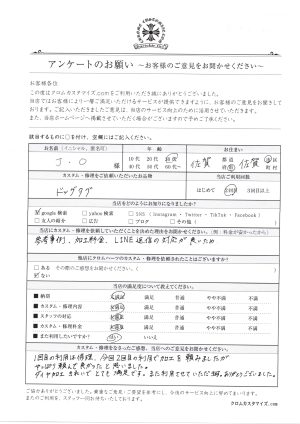 アンケートのお願い ～お客様のご意見をお聞かせください～
お客様各位
この度はクロムカスタマイズ.comをご利用いただき誠にありがとうございました。
当店ではお客様により一層ご満足いただけるサービスが提供できますように、お客様のご意見をお聞きして
おります。ご記入いただきましたご意見は、当店のサービス向上のために活用させていただきます。
また、当店ホームページへ掲載させていただく場合がございますので予めご了承ください。
該当するものに○を付け、空欄にはご記入ください。
お名前（イニシャル、匿名可） 年 齢 お住まい
J・O 様
10代 20代 30代
40代 50代 60代
佐賀 都道府県 佐賀 市区町村
カスタム・修理をご依頼いただいたお品物 当店ご利用回数
ドッグタグ はじめて 2回目 3回目以上
当店をどのようにお知りになりましたか？
google 検索 yahoo 検索 SNS（Instagram・Twitter・TikTok・Facebook）
友人の紹介 広告 ブログ その他（ ）
当店にカスタム・修理を依頼していただくことを決めた理由をお聞かせください。（例：料金が安かったから）
参考事例、加工料金、LINE返信の対応が良いため
他店にクロムハーツのカスタム・修理を依頼されたことはございますか？
ある その際のご感想をお聞かせください（ ）
ない
当店の満足度について教えてください。
■ 納期 大満足 満足 普通 やや不満 不満
■ カスタム・修理内容 大満足 満足 普通 やや不満 不満
■ スタッフの対応 大満足 満足 普通 やや不満 不満
■ カスタム・修理料金 大満足 満足 普通 やや不満 不満
■ また利用したいですか？ はい いいえ
カスタム・修理をなさったご感想、当店へのご意見をお聞かせください。
1回目の利用は修理、今回2回目の利用で加工を頼みましたが
やっぱり頼んで良かったと思いました。
ダイヤ加工もきれいでとても満足です。また利用させていただきます。ありがとうございました。
ご協力ありがとうございました。貴重なご意見・ご要望を参考にし、今後のサービス向上に努めてまいります。
またのご利用を、スタッフ一同お待ちいたしております。
クロムカスタマイズ.com